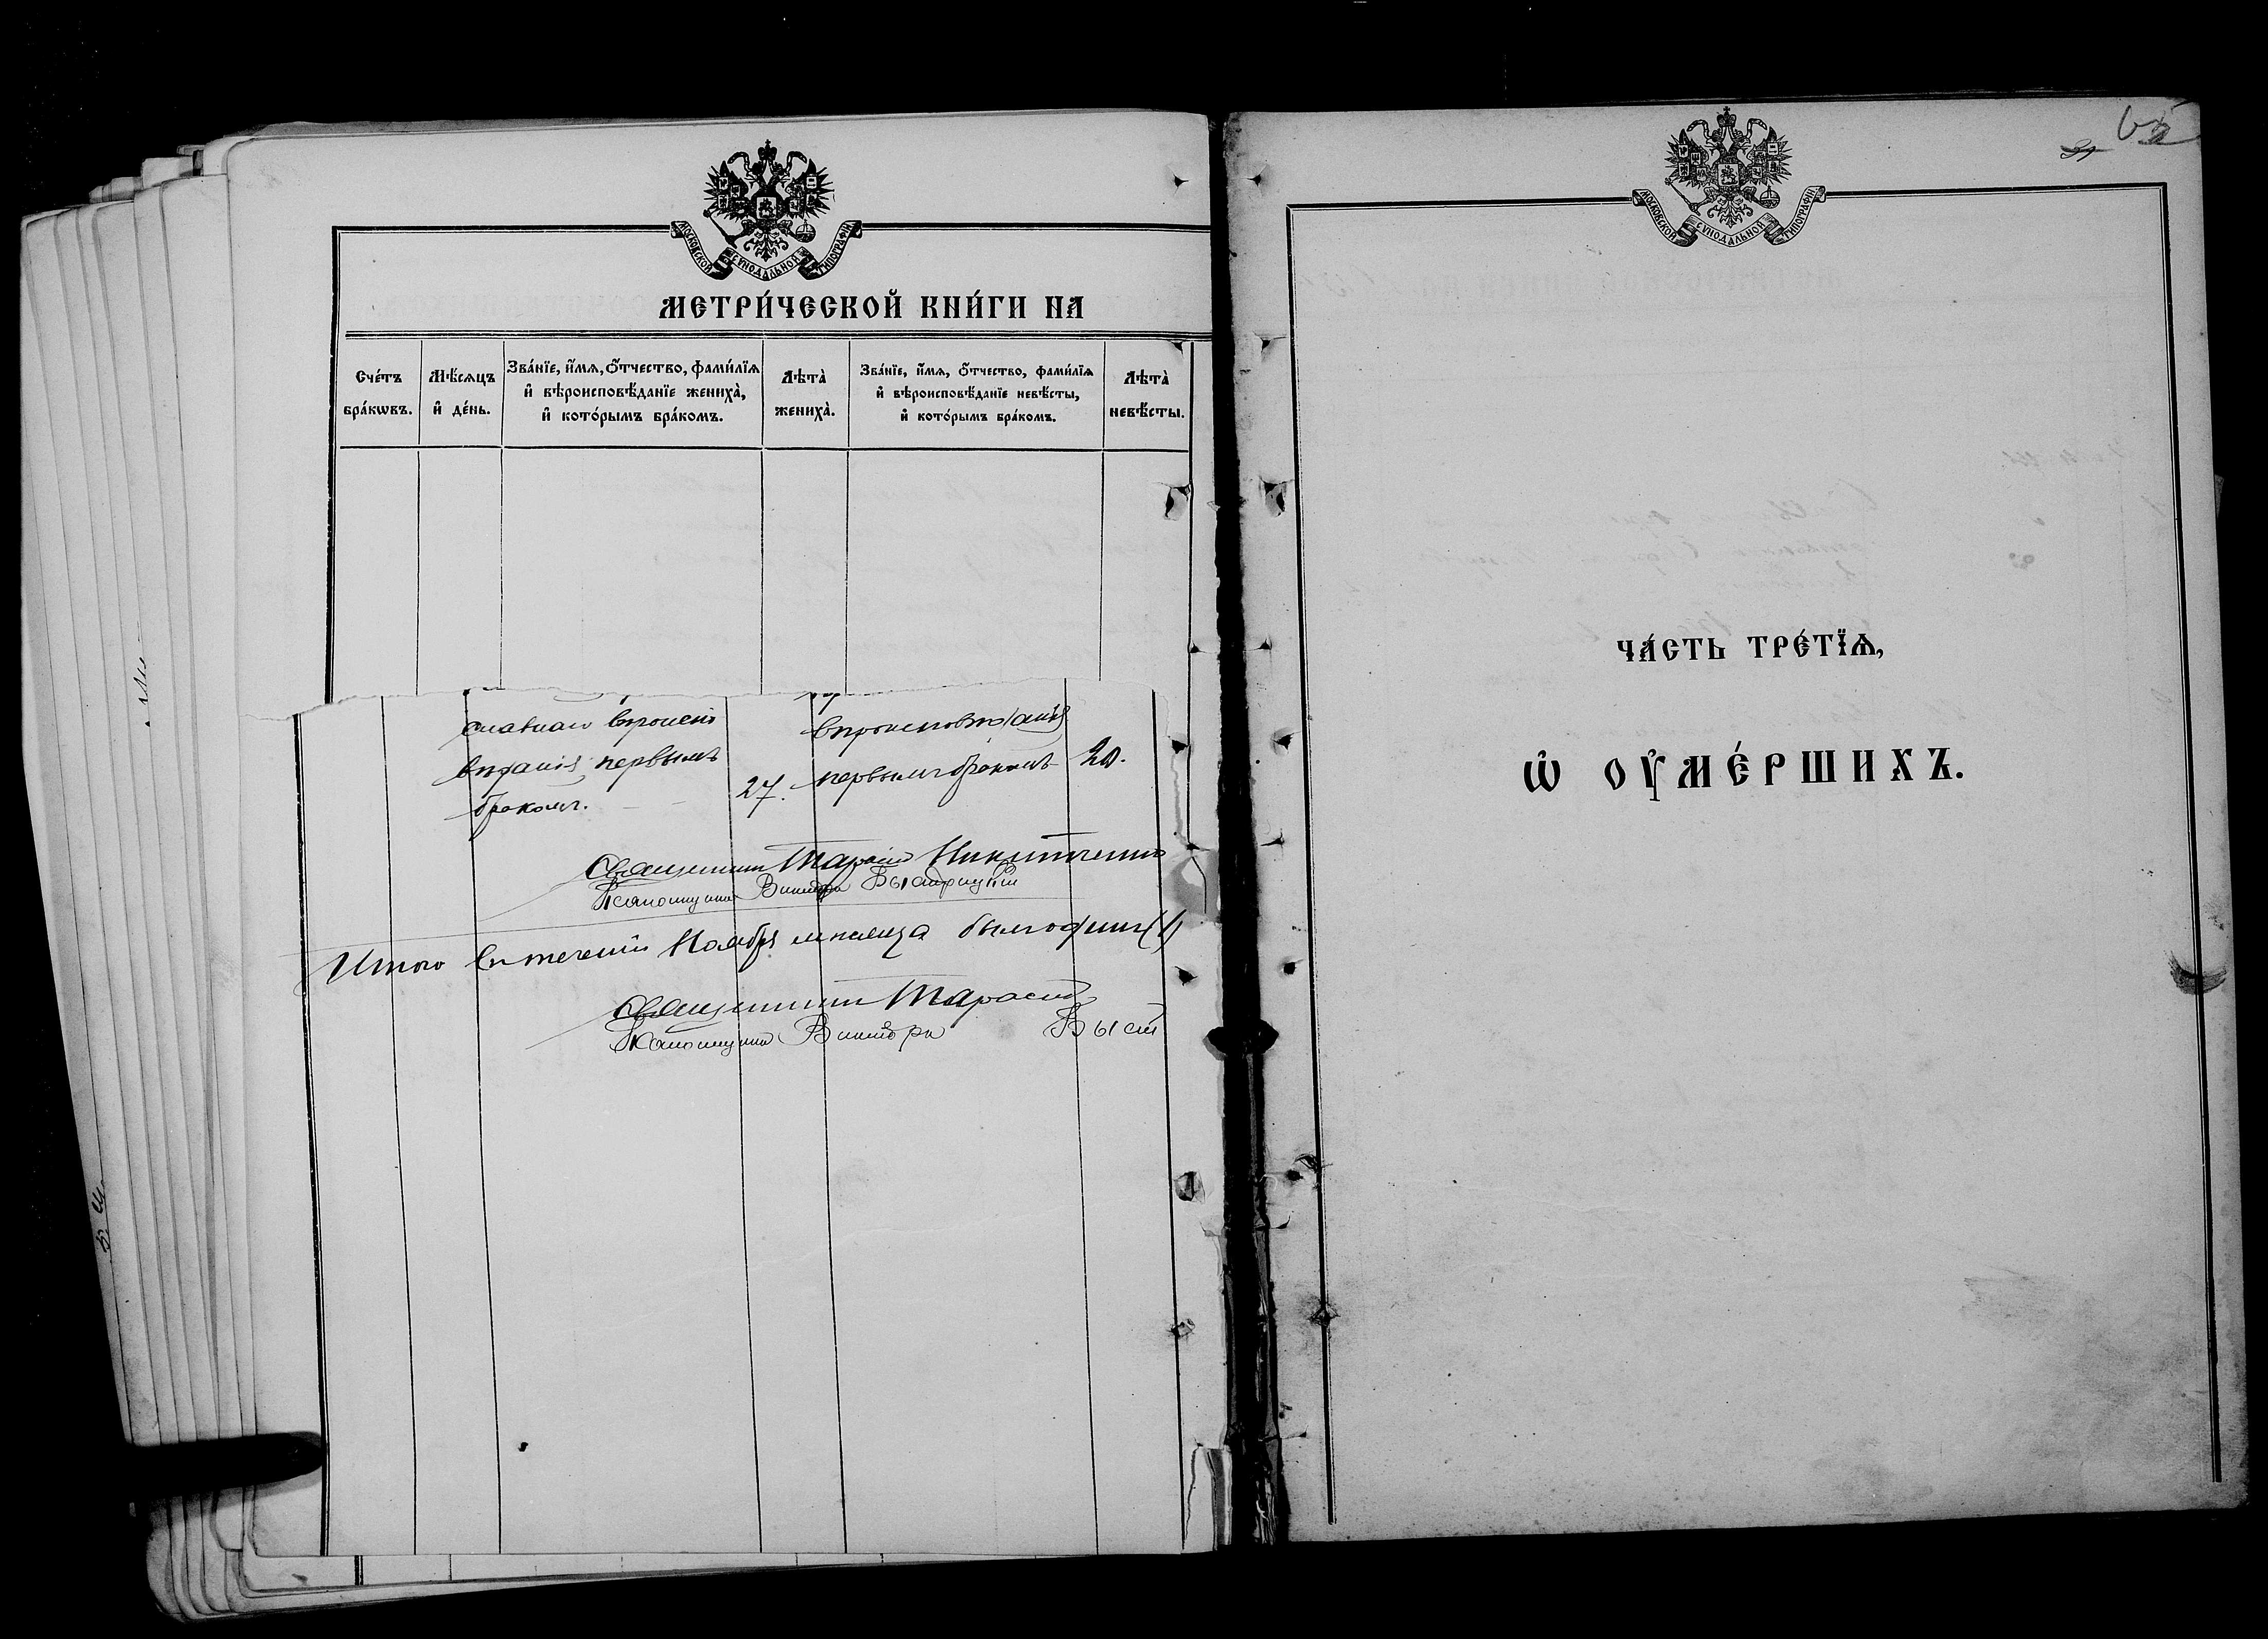 МОСКОВСКОЙ СѴНОДАЛЬНОЙ ТИПОГРАФІИ
МЕТРИ́ЧЕСКОЙ КНИ́ГИ НА
Сче́тъ бра́кѡвъ.
Мѣ́сяцъ и҆ де́нь.
Зва́нїе, и҆́мя, ѻ҆́тчество, фами́лїя
и҆ вѣроисповѣ́данїе жениха̀,
и҆ кото́рымъ бра́комъ.
Лѣта̀ жениха̀.
Зва́нїе, и҆́мя, ѻ҆́тчество, фами́лїя
и҆ вѣроисповѣ́данїе невѣ́сты,
и҆ кото́рымъ бра́комъ.
Лѣта̀ невѣ́сты.
славнаго вѣроиспо
вѣданія, первымъ
бракомъ.
27.
вѣроисповѣданія
первымъ бракомъ
20.
Священникъ Тарасій Никитченко
Псаломщикъ Викторъ Быстрицкій
Итого въ теченіи Ноября мѣсяца былъ одинъ (1)
Священникъ Тарасій
Псаломщикъ Викторъ Быст
МОСКОВСКОЙ СѴНОДАЛЬНОЙ ТИПОГРАФІИ
65
ЧА́СТЬ ТРЕ́ТЇѦ,
Ѡ҆ ОУ҆МЕ́РШИХЪ.